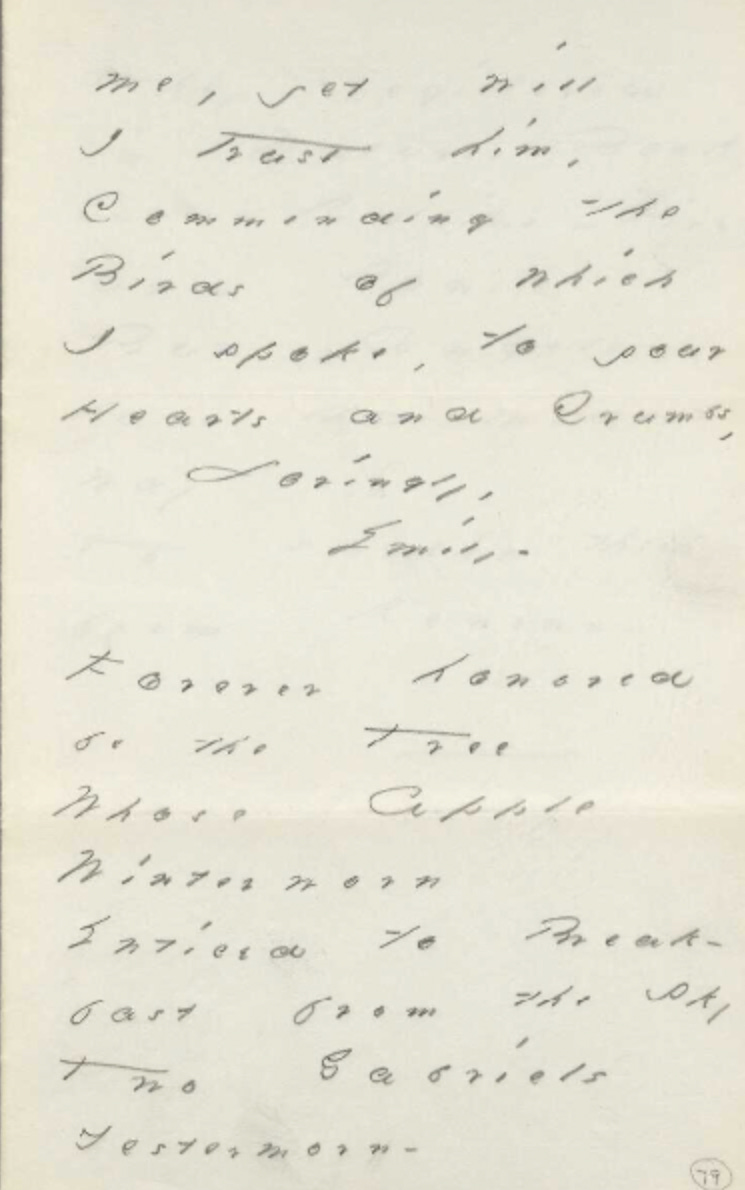 me, yet will
I trust him,
Commending the
Birds of which
I spoke, to your
Hearts and Crumbs,
Lovingly,
Emily-
Forever honored
be the Tree
Whose Apple
Winterworn
Enticed to Break-
fast from the Sky
Two Gabriels
Yestermorn-
79